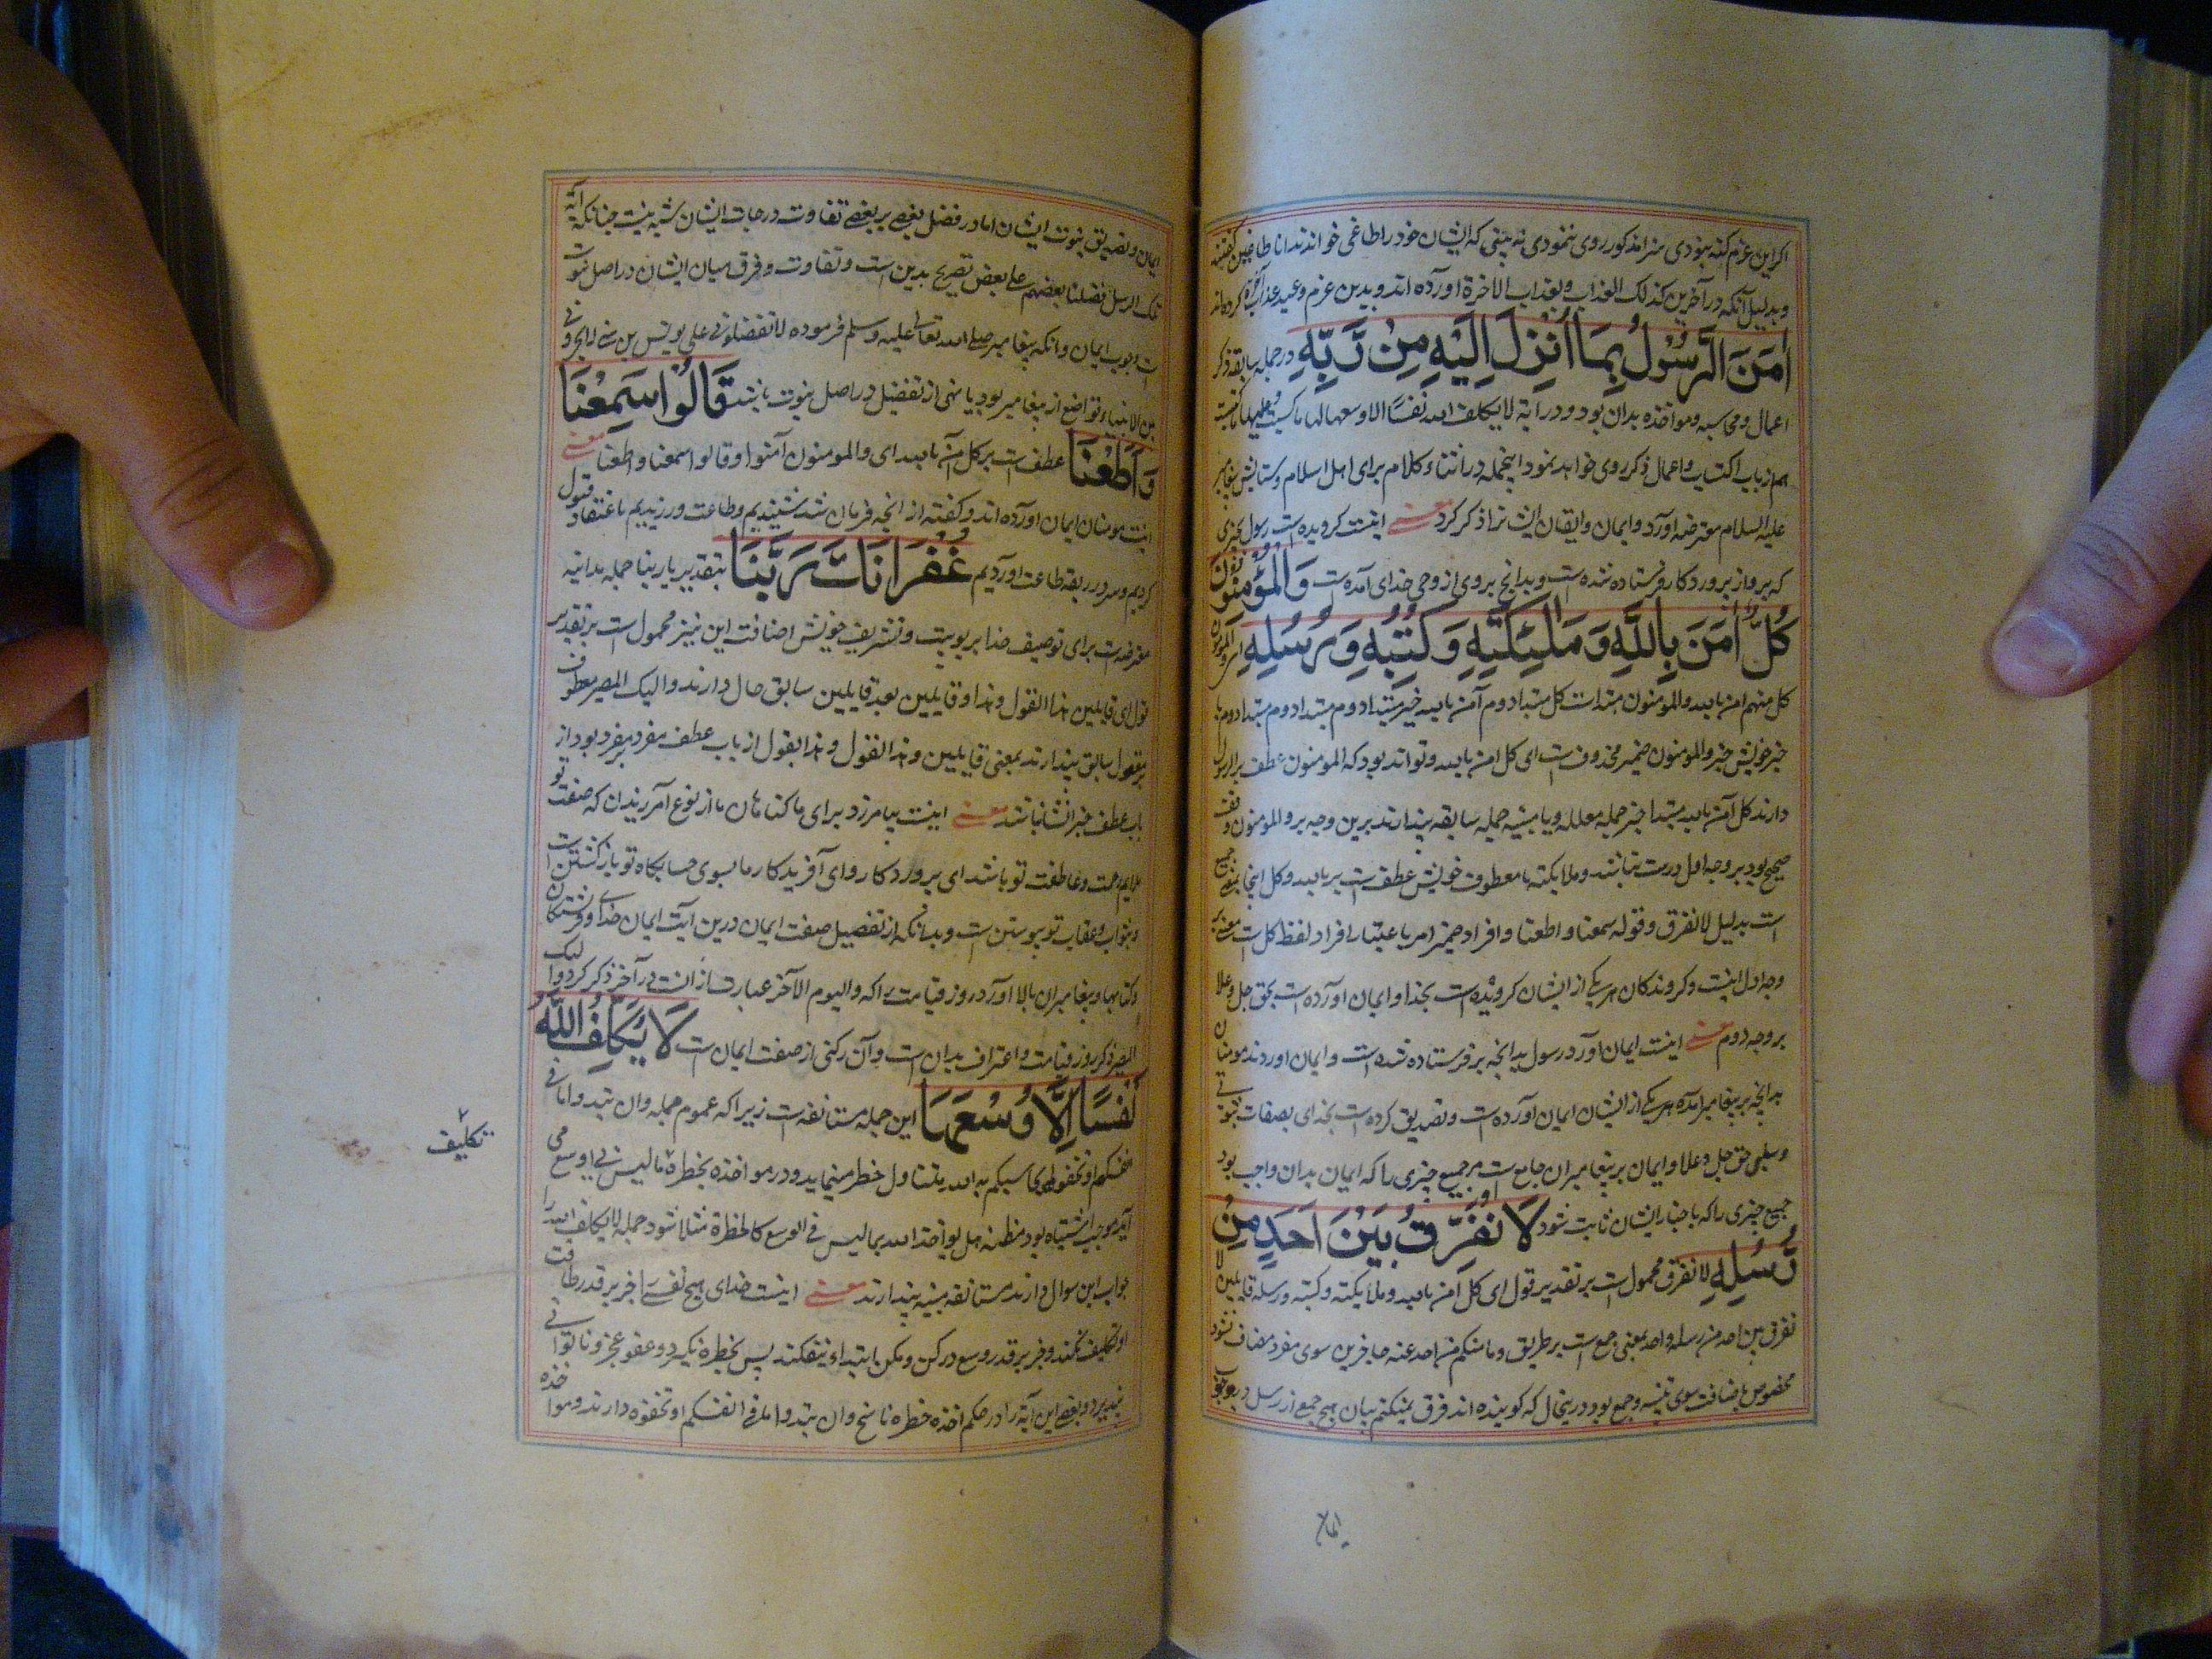 اکر این عزم کنه نبودی سزا مذکور روی ننمودی نه بینی که ایشان خود را طاغی خواندند انا طاغین کفتند
و بدلیل آنکه در آخرین کذلک العذاب و لعذاب الاخرة آورده اند و بدین عزم وعید عذاب آخرة کرده اند
اٰمَنَ الرَّسُوْلُ بِمَا اُنْزِلَ اِلَیْهِ مِنْ رَّبِّهٖ در جمله سابقه ذکر
اعمال و محاسبه و مواخذه بدان بود و در آیة لا یکلف الله نفسًا الا وسعها لها ما کسبت و علیها ما اکتسبت
هم از باب اکتساب و اعمال ذکر روی خواهد نمود اینجمله در اثناء کلام برای اهل اسلام و ستایش پیغامبر
علیه السلام معترضه آورد و ایمان و ایقان ایشانرا ذکر کرد معنے اینست کرویده است رسول بچیزی
که برو از پروردکار فرستاده شده است و بدانچ بروی از وحی خدای آمده است وَالْمُؤْمِنُوْنَ
كُلٌّ اٰمَنَ بِاللّٰهِ وَمَلٰٓئِكَتِهٖ وَكُتُبِهٖ وَرُسُلِهٖ
کل منهم امن بالله والمومنون مبتدا است کل مبتداء دوم آمن بالله خبر مبتداء دوم مبتداء دوم با
خبر خویش خبر والمومنون ضمیر محذوف است ای کل امن بالله و تواند بود که المومنون عطف بر الرسول
دارند کل آمن بالله مبتدا خبر جمله معلله و یا مبنیه جمله سابقه پندارند برین وجه بر و المومنون وقف
صحیح بود بر وجه اول درست نباشد و ملایکته با معطوف خویش عطف است بر بالله و کل اینجا بمعنی جمیع
است بدلیل لا نفرق و قوله سمعنا و اطعنا و افراد ضمیر امن باعتبار افراد لفظ کل است معنے بر
وجه اول اینست و کروندکان هر یکے از ایشان کرویده است بخدا و ایمان آورده است بحق جل و علا
بر وجه دوم معنے اینست ایمان آورد رسول بدانچه بر فرستاده شده است و ایمان اوردند مومنان
بدانچه بر پیغامبر آمده هر یکے از ایشان ایمان آورده است و تصدیق کرده است بخدای بصفات ثبوتی
و سلبی حق جل و علا و ایمان بر پیغامبران جامع است مر جمیع چیزی را که ایمان بدان واجب بود
جمیع چیزی را که باخبار ایشان ثابت شود لَا نُفَرِّقُ بَیْنَ اَحَدٍ مِّنْ
رُّسُلِهٖ لا نفرق محمول است بر تقدیر قول ای کل آمن بالله و ملایکته و کتبه و رسله قایلین لا
نفرق بین احد من رسله و احد بمعنی جمع است بر طریق و ما منکم من احد عنه حاجزین سوی مفرد مضاف نشود
مخصوص باضافت سوی تثنیه و جمع بود در ینحال که کوینده اند فرق نمیکنم میان هیچ جمعی از رسل در وجوب
ایمان
ایمان و تصدیق نبوت ایشان اما در فضل بعضے بر بعضے تفاوت درجات ایشان شبه نیست چنانکه آیه
تلک الرسل فضلنا بعضهم علے بعض تصریح بدین است و تفاوت و فرق میان ایشان در اصل نبوت
است وجوب ایمان و آنکه پیغامبر صلے الله تعالی علیه و سلم فرموده لا تفضلونی علی یونس بن متی از بحر و فی
بن الانبیاء تواضع از پیغامبر بود یا نهی از تفضیل در اصل نبوت باشد قَالُوْا سَمِعْنَا
وَاَطَعْنَا عطف است بر کل آمن بالله ای والمومنون آمنوا و قالوا سمعنا و اطعنا معنے
اینست مومنان ایمان آورده اند و کفته از انچه فرمان شد شنیدیم و طاعت ورزیدیم باعتقاد قبول
کردیم و سر در ربقه طاعت آوردیم غُفْرَانَكَ رَبَّنَا بتقدیر یا ربنا جمله بدانیه
معترضه است برای توصیف خدا بربوبیت و تشریف خویش اضافت این نیز محمول است بر تقدیر
قول ای قایلین هذا القول و هذا و قایلین بعد قایلین سابق حال دارند و الیک المصیر معطوف
بر مقول سابق پندارند بمعنی قایلین و هذا القول و هذا بقول از باب عطف مفرد بمفرد بود از
باب عطف خبر انشا نباشد معنے اینست بیامرزد برای ما کناهان ما از نوع آمرزیدن که صفت تو
ملایم رحمت و عاطفت تو باشد ای پروردکار و ای آفریدکار ما بسوی حسابکاه تو باز کشتن است
و بثواب و عقاب تو پیوستن است و بدانکه از تفصیل صفت ایمان درین آیت ایمان خدای و فرشتکان
و کتابها و پیغامبران بالا آورد روز قیامت را که و الیوم الآخر عبارت از انست در آخر ذکر کرد و الیک
المصیر ذکر روز قیامت و اعتراف بدان است و آن رکنی از صفت ایمان است لَا یُكَلِّفُ اللّٰهُ
نَفْسًا اِلَّا وُسْعَهَا این جمله مستانفه است زیرا که عموم جمله و ان تبدوا ما فی
انفسکم او تخفوه ای سبکم به الله بتناول خطر مینماید و در مواخذه بخطره ما لیس فی الوسع می
آید موجب اشتباه بود مظنه هل یواخذ الله بما لیس فی الوسع کالخطرة مثلا شود جمله لا یکلف الله را
جواب این سوال دارند مستانفه مبنیه پندارند معنے اینست خدای هیچ نفسے را جز بر قدر طاقت
او تکلیف نکند و جز بر قدر وسع در کن و مکن ابتداء نیفکند پس بخطره نکیرد و عفو عجز و ناتوانی
بپذیرد و بعضے این آیة را در حکم اخذه خطره ناسخ و ان تبدوا ما فی انفسکم او تخفوه دارند و مواخذه
تکلیف